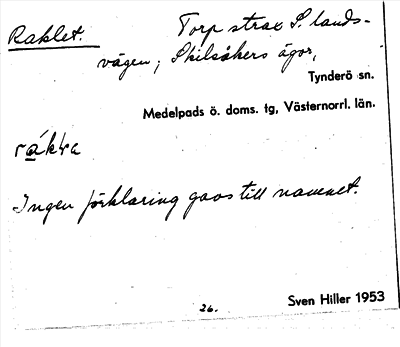 Raklet. Torp strax S. lands-
vägen; Skilsåkers ägor,
Tynderö sn.
Medelpads ö. doms. tg, Västernorrl. län.
Ingen förklaring gavs till namnet.
26. Sven Hiller 1953